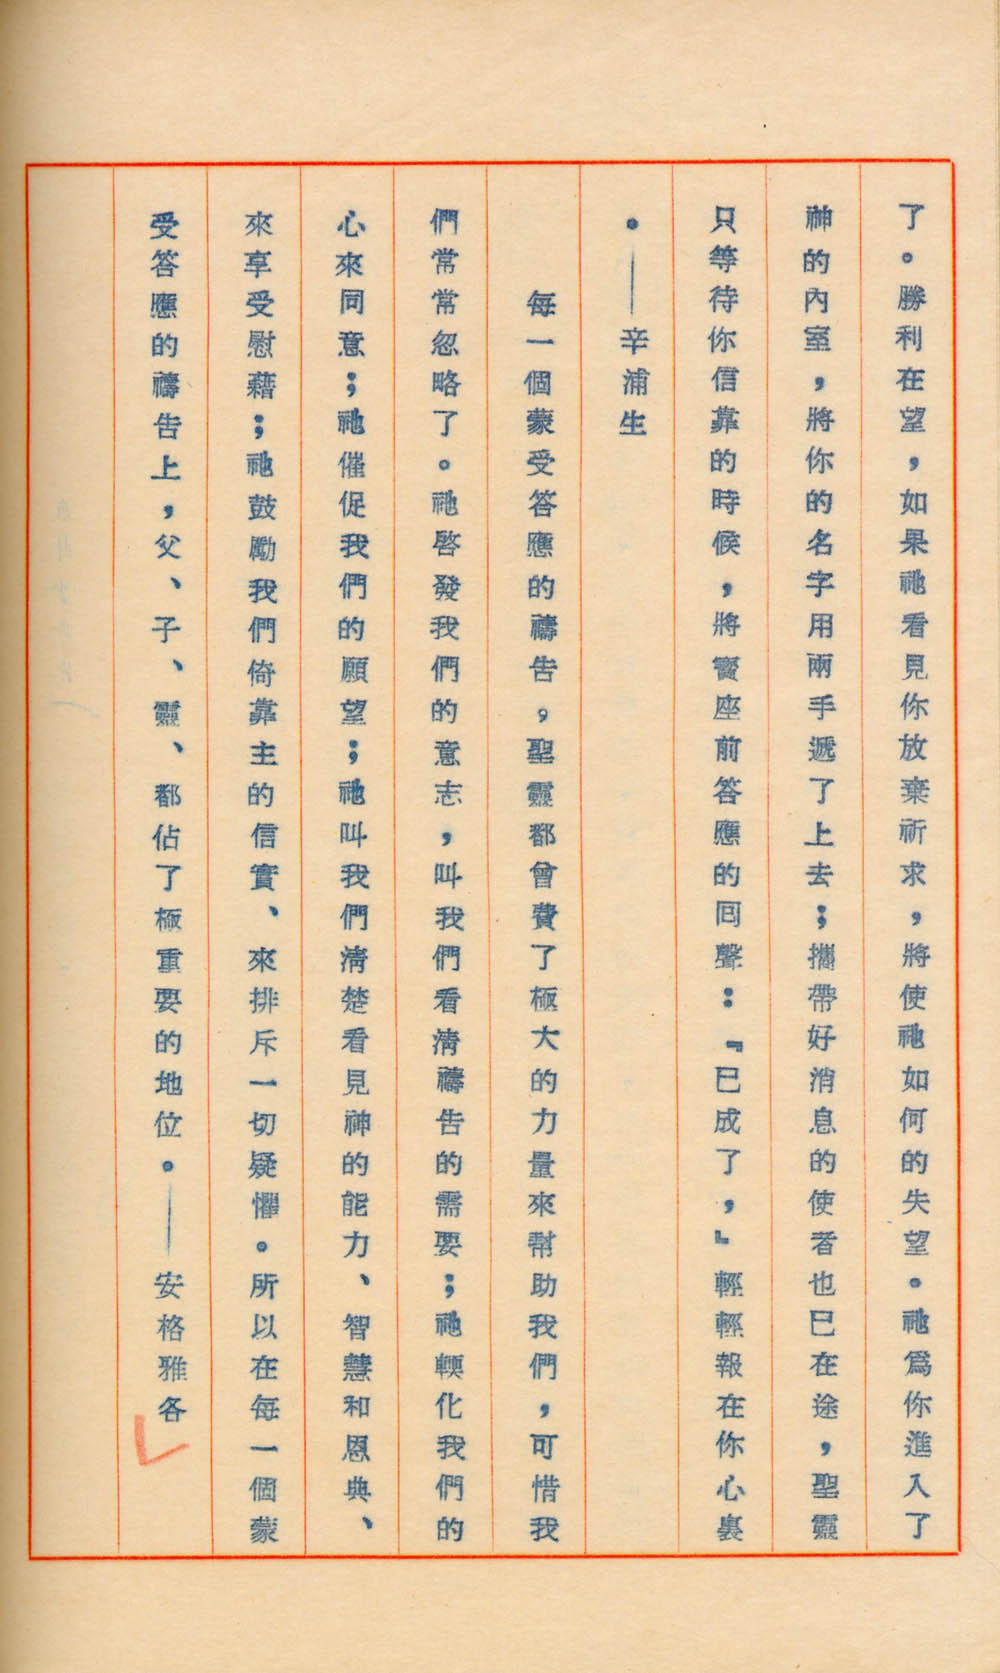 了。勝利在望，如果祂看見你放棄祈求，將使祂如何的失望。祂爲你進入了
神的內室，將你的名字用兩手遞了上去；攜帶好消息的使者也已在途，聖靈
只等待你信靠的時候，將寶座前答應的回聲：『已成了，』輕輕報在你心裏
。——辛浦生
每一個蒙受答應的禱告。聖靈都曾費了極大的力量來幫助我們，可惜我
們常常忽略了。祂啓發我們的意志，叫我們看淸禱告的需要；祂輭化我們的
心來同意；祂催促我們的願望；祂叫我們淸楚看見神的能力、智慧和恩典、
來享受慰藉；祂鼓勵我們倚靠主的信實、來排斥一切疑懼。所以在每一個蒙
受答應的禱告上，父、子、靈、都佔了極重要的地位。——安格雅各